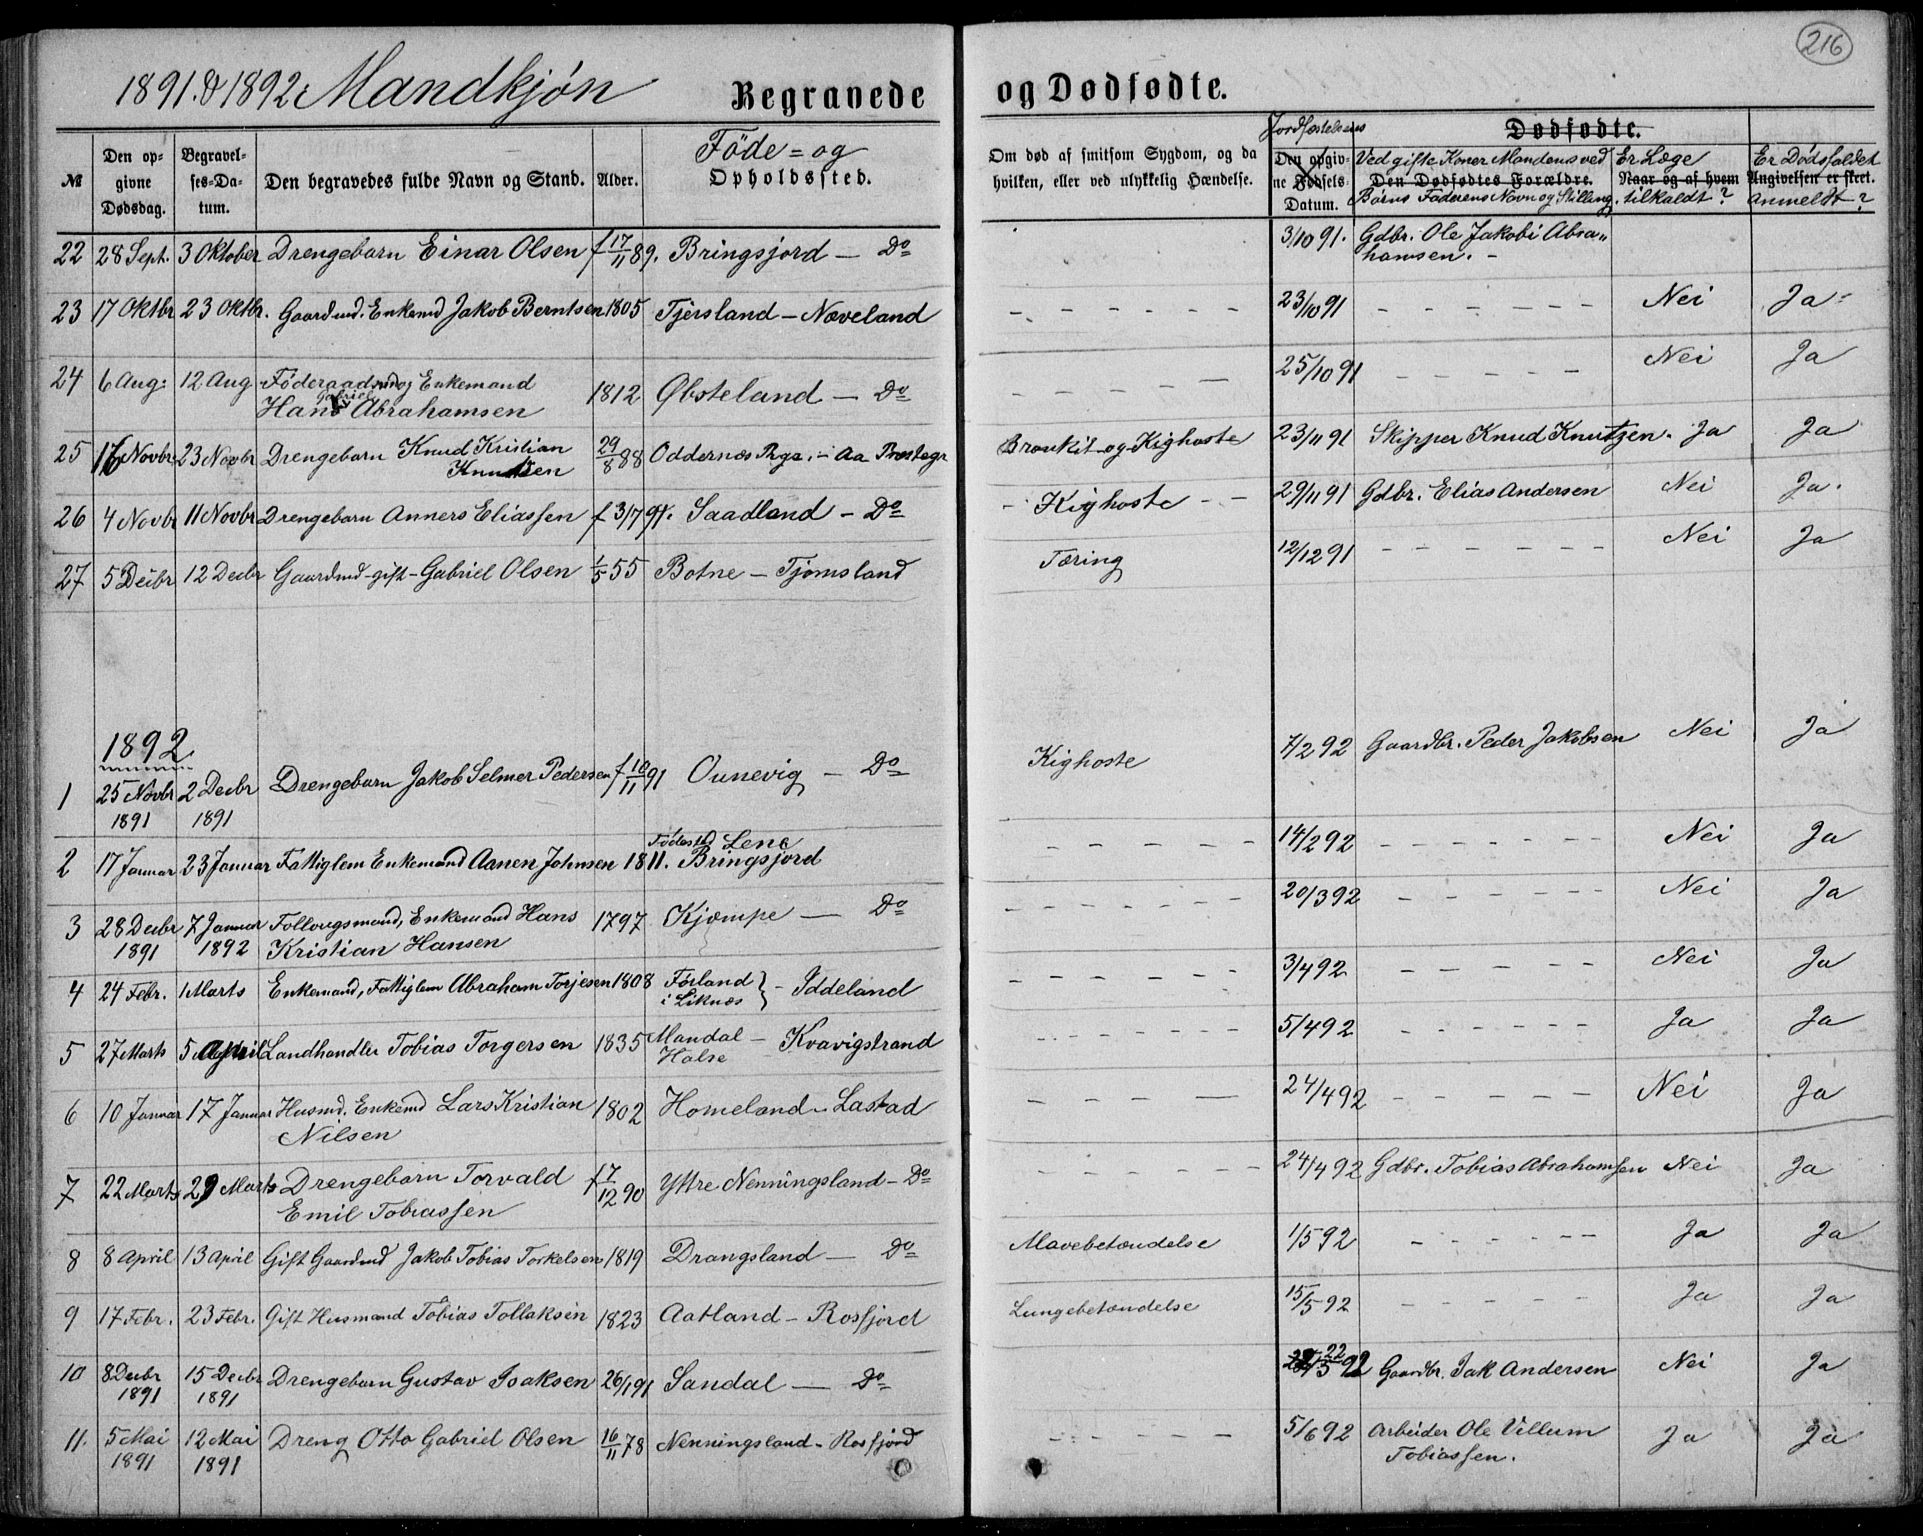 216
1891 & 1892 Mandkjøn Begravede og Dødfødte.
№ | Den opgivne Dødsdag. | Begravelses-Datum. | Den begravedes fulde Navn og Stand. | Alder. | Føde= og Opholdssted. | Om død af smitsom Sygdom, og da hvilken, eller ved ulykkelig Hændelse. | Jordfæstelsens Den opgivne Fødsels Datum. | Dødfødte. Ved gifte Koner Mandens ved Den Dødfødtes Forældre. Børns Faderens Navn og Stilling. | Er Læge Naar og af hvem tilkaldt? | Er Dødsfaldet Angivelsen er skeet. anmeldt?
22 28 Sept. 3 Oktober Drengebarn Einar Olsen f 17/11 89. Bringsjord — Do 3/10 91. Gdbr. Ole Jakobi Abra„
hamsen. –
23 17 Oktbr 23 Oktbr. Gaardmd. Enkemd Jakob Berntsen 1805 Tjersland – Noveland – – – – – – 23/10 91 – – – – – Nei Ja
24 6 Aug: 12 Aug Föderaadsmd og Enkemand
Hans Gabriel Abrahamsen 1812 Øbsteland — Do – – – – 25/10 91 – – – – – Nei Ja
25 16 Novbr 23 Novbr Drengebarn Knud Kristian
Knudsen 29/8 88 Oddernæs Prgs. – Aa Præstegr Bronkit og Kighoste 23/11 91 Skipper Knud Knutzen. Ja Ja
26 4 Novbr 11 Novbr Drengebarn Anners Eliassen f 3/7 91. Saadland – Do – Kighoste – – 29/11 91 Gdbr. Elias Andersen Nei Ja.
27 5 Decbr 12 Decbr Gaardmd – gift – Gabriel Olsen 1/5 55 Botne – Tjomsland Tæring 12/12 91 – – – – – – Nei Ja
1892
1 25 Novbr 1891 2 Decbr 1891 Drengebarn Jakob Selmer Pedersen f 10/11 91 Ounevig – Do Kighoste 7/2 92 Gaardbr. Peder Jakobsen Nei Ja
2 17 Januar 23 Januar Fattiglem Enkemand Aanen Johnsen 1811. Fødested Lene
Bringsjord – – – – – 14/2 92 – – – – – – Nei Ja
3 28 Decbr 1891 7 Januar 1892 Follougsmand, Enkemand Hans
Kristian Hansen 1797 Kjømpe — Do – – – – – – 20/3 92 – – – – – Nei Ja
4 24 Febr. 1 Marts Enkemand, Fattiglem Abraham Torjesen 1808 Førland
i Liknæs } – Iddeland – – – – – 3/4 92 – – – – – Nei Ja
5 27 Marts 5 April Landhandler Tobias Torgersen 1835 Mandal –
Halse Kvavigstrand – – – – – 5/4 92 – – – – – – Ja Ja
6 10 Januar 17 Januar Husmd. Enkemd Lars Kristian
Nilsen 1802 Homeland – Lastad – – – — 24/4 92 – – – – – – Nei Ja
7 22 Marts 29 Marts Drengebarn Torvald
Emil Tobiassen f 17/12 90 Yttre Nenningsland – Do – – – – – – 24/4 92 Gdbr. Tobias Abrahamsen Nei Ja
8 8 April 13 April Gift Gaardmd Jakob Tobias Torkelsen 1819 Drangsland — Do Mavebetændelse 1/5 92 – – – – – – Ja Ja
9 17 Febr. 23 Febr. Gift Husmand Tobias Tollaksen 1823 Aatland – Rosfjord Lungebetændelse 15/5 92 – – – – – Ja Ja
10 8 Decbr 1891 15 Decbr 1891 Drengebarn Gustav Isaksen 26/1 91 Sandal — Do 22/5 92 Gaardbr. Isak Andersen Nei Ja
11. 5 Mai 1891 12 Mai 1891 Dreng Otto Gabriel Olsen 16/11 78 Nenningsland – Rosfjord – – – – – 5/6 92 Arbeider Ole Villum
Tobiassen. Ja Ja